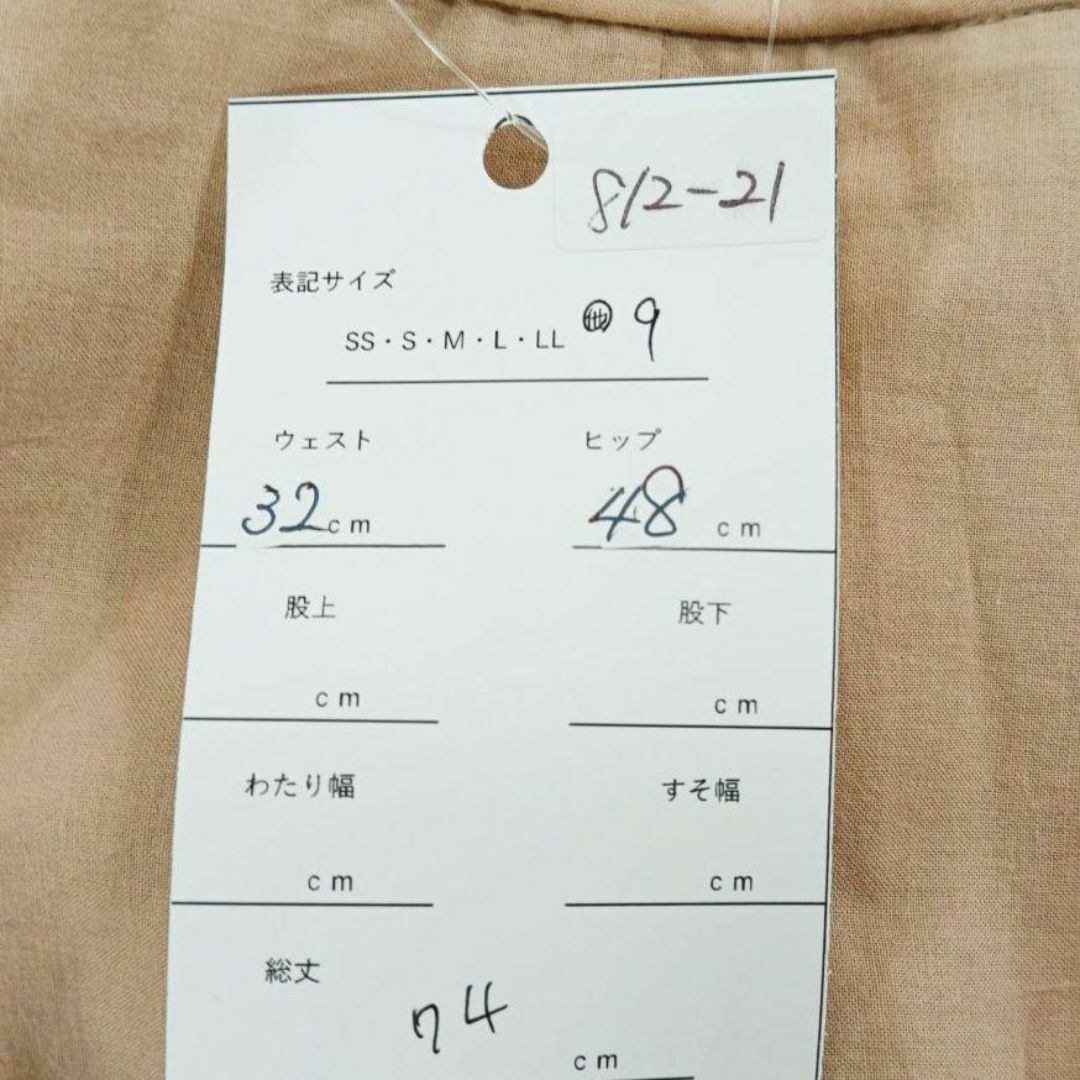 812-21
表記サイズ
SS・S・M・L・LL 他 9
ウェスト ヒップ
32cm 48 cm
股上 股下
cm cm
わたり幅 すそ幅
cm cm
総丈
74
cm